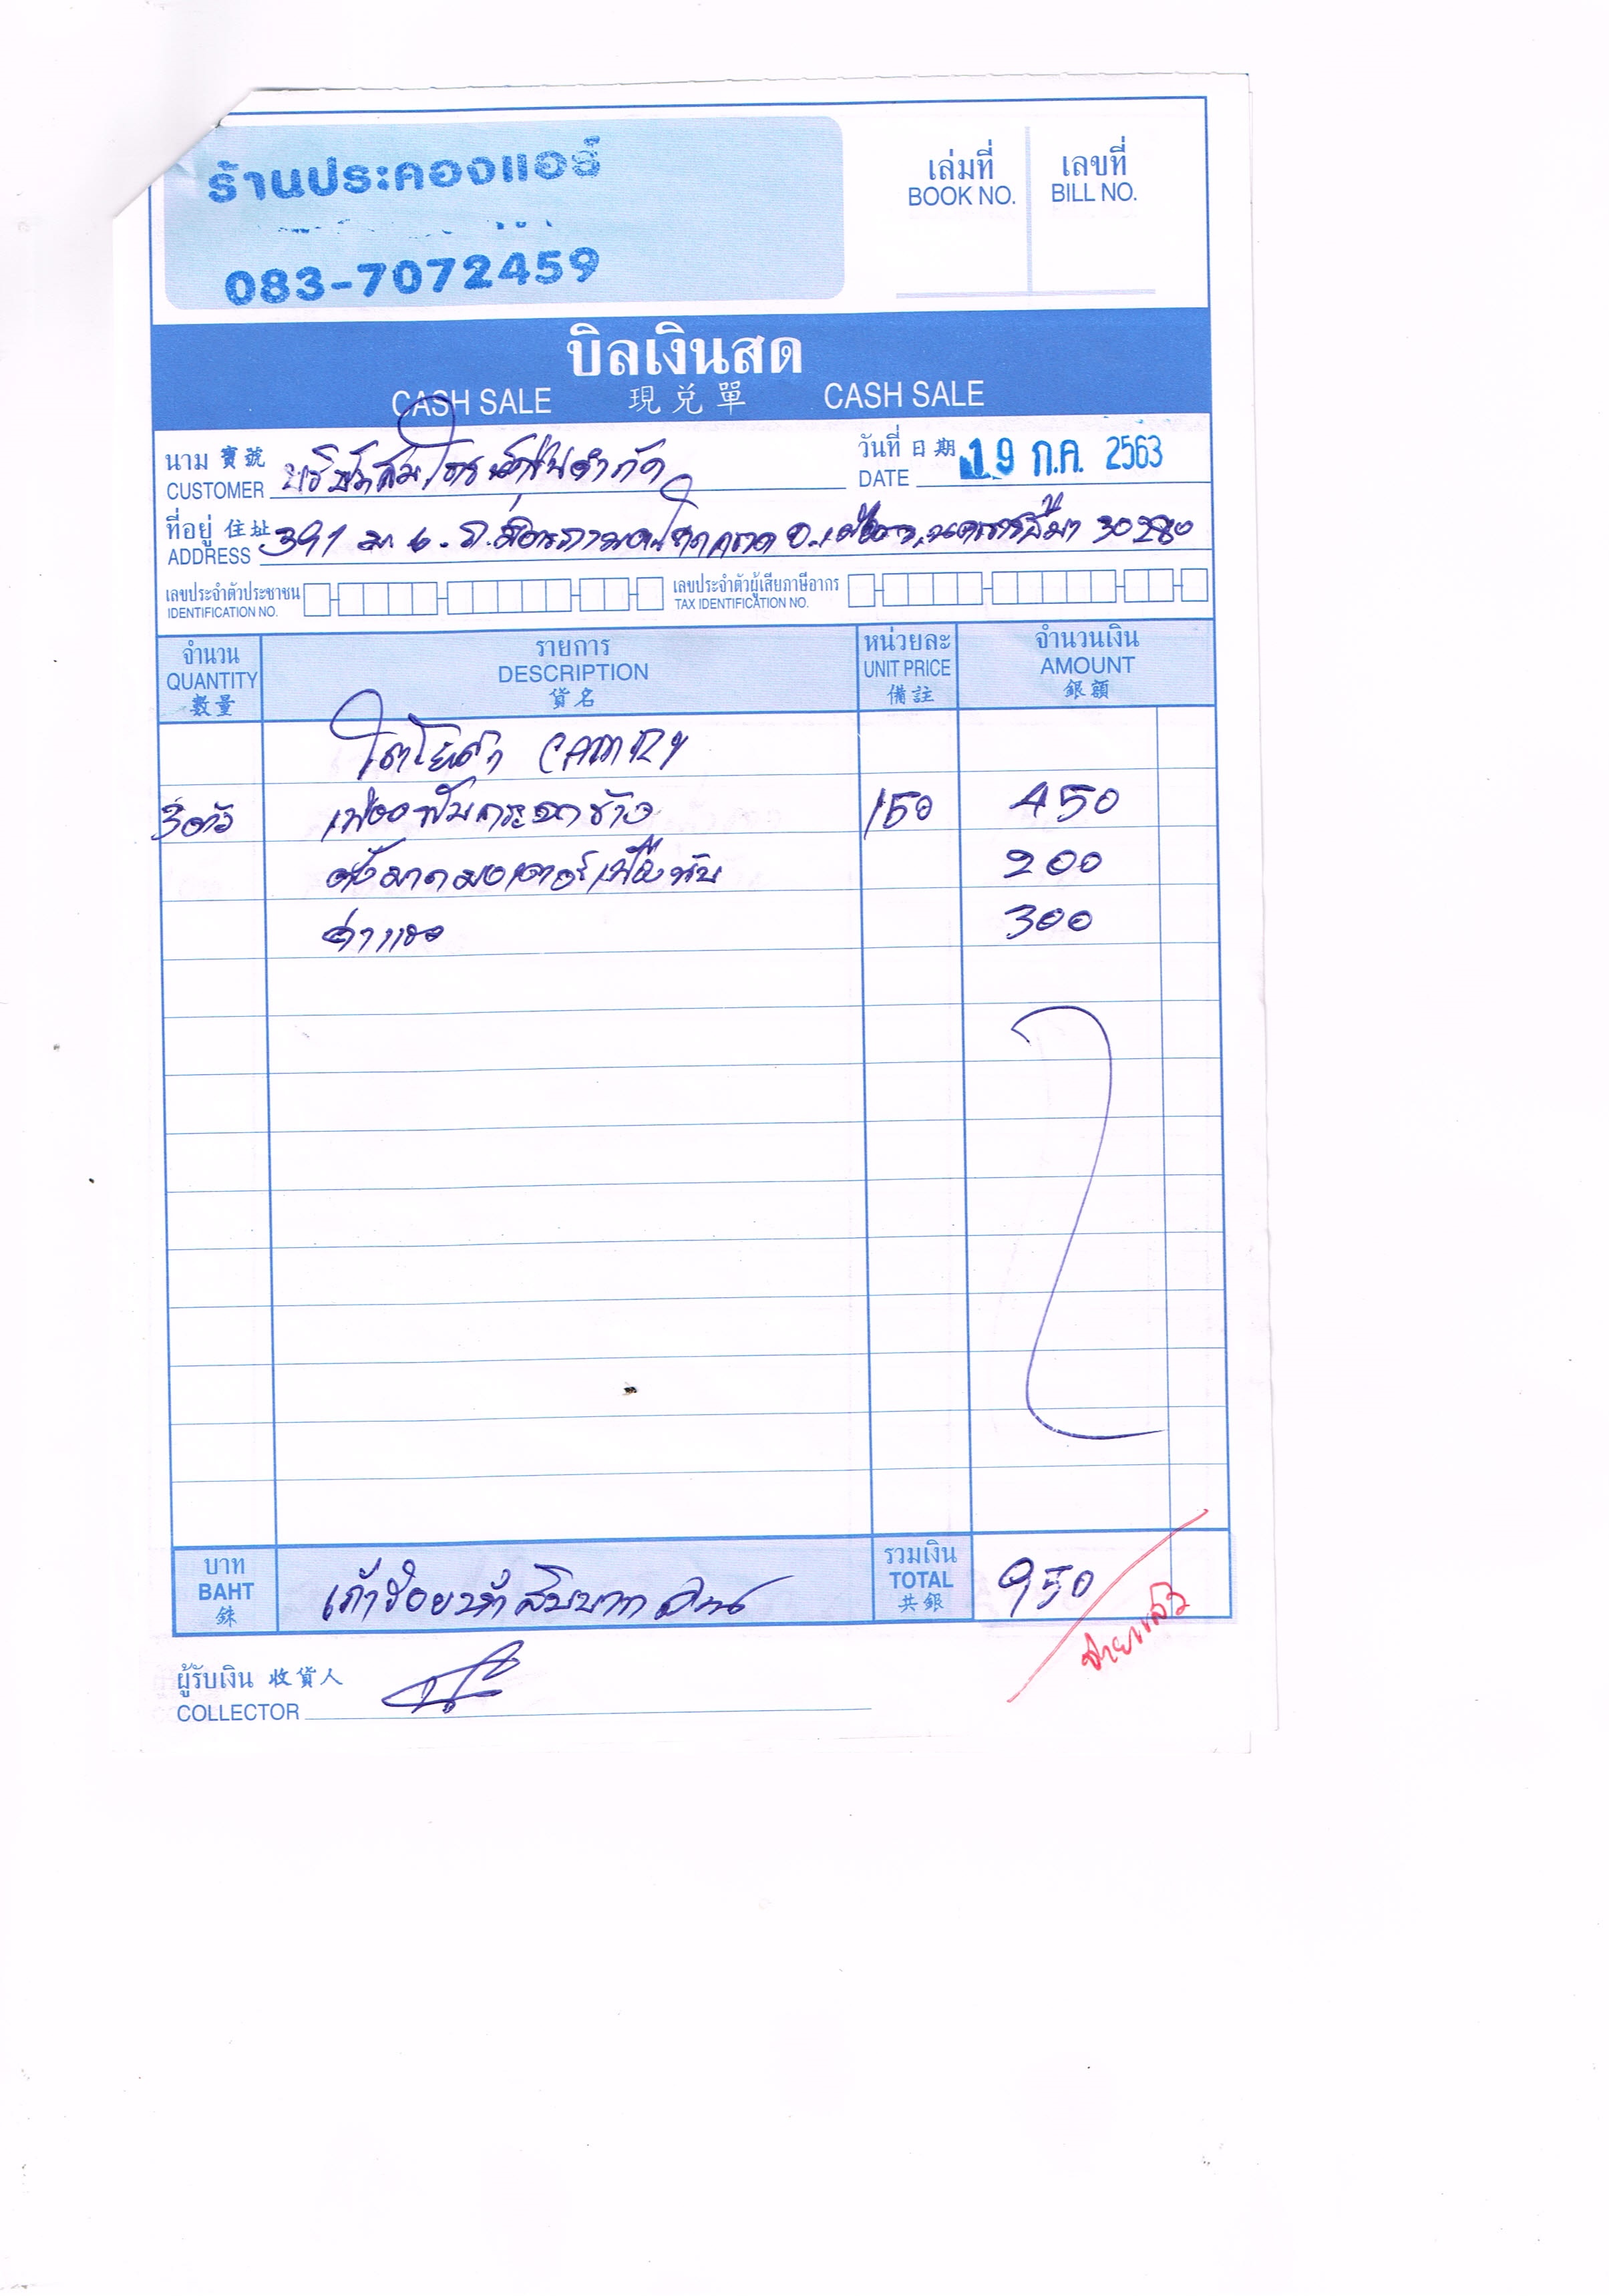 ร้านประคองแอร์
083-7072459
เล่มที่ เลขที่
BOOK NO. BILL NO.
บิลเงินสด
CASH SALE 現兌單 CASH SALE
นาม 寶號 วันที่ 日期 19 ก.ค. 2563
CUSTOMER บริษัท จำกัด DATE
ที่อยู่ 住址 391 ม.6 นครราชสีมา 30280
ADDRESS
เลขประจำตัวประชาชน เลขประจำตัวผู้เสียภาษีอากร
IDENTIFICATION NO. TAX IDENTIFICATION NO.
จำนวน รายการ หน่วยละ จำนวนเงิน
QUANTITY DESCRIPTION UNIT PRICE AMOUNT
數量 貨名 備註 銀額
โตโยต้า CAMRY
3 ตัว เฟืองฟันกระจกข้าง 150 450
200
ค่าแรง 300
บาท เก้าร้อยห้าสิบบาทถ้วน รวมเงิน 950
BAHT TOTAL
銖 共銀
จ่ายแล้ว
ผู้รับเงิน 收貨人
COLLECTOR